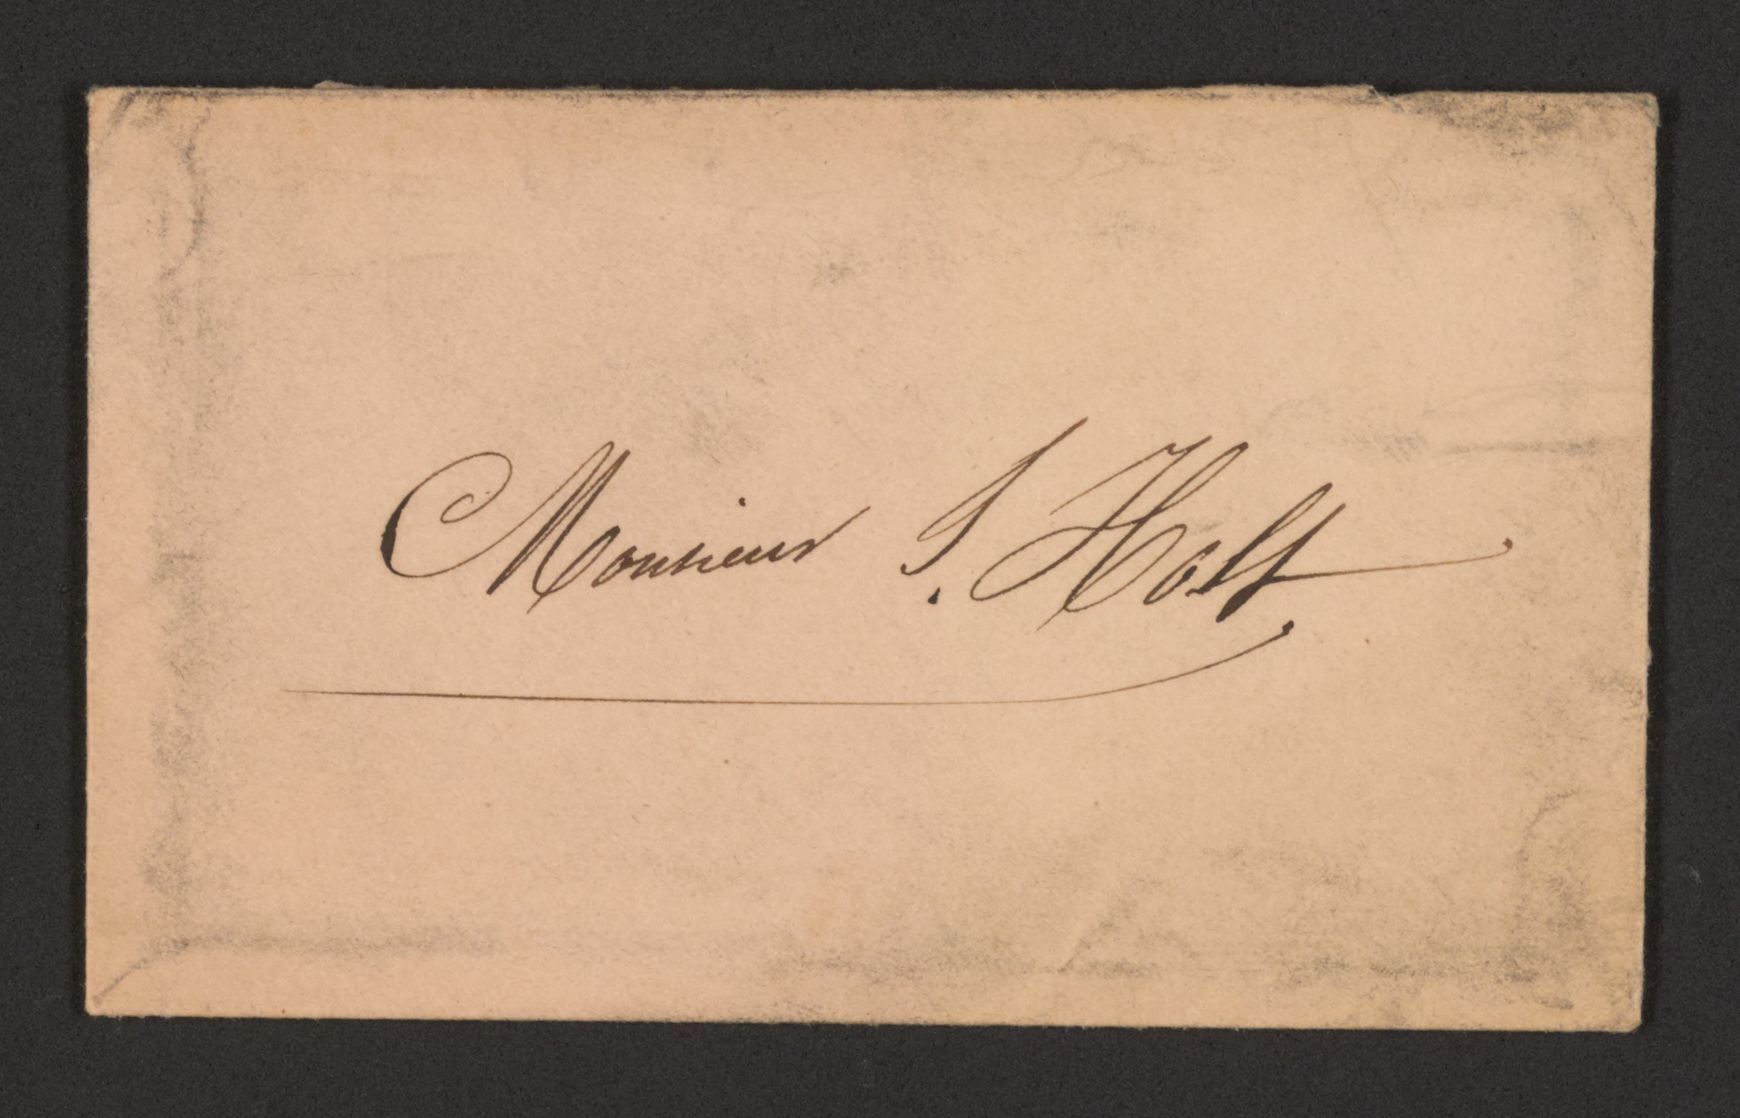 Monsieur S. Holt